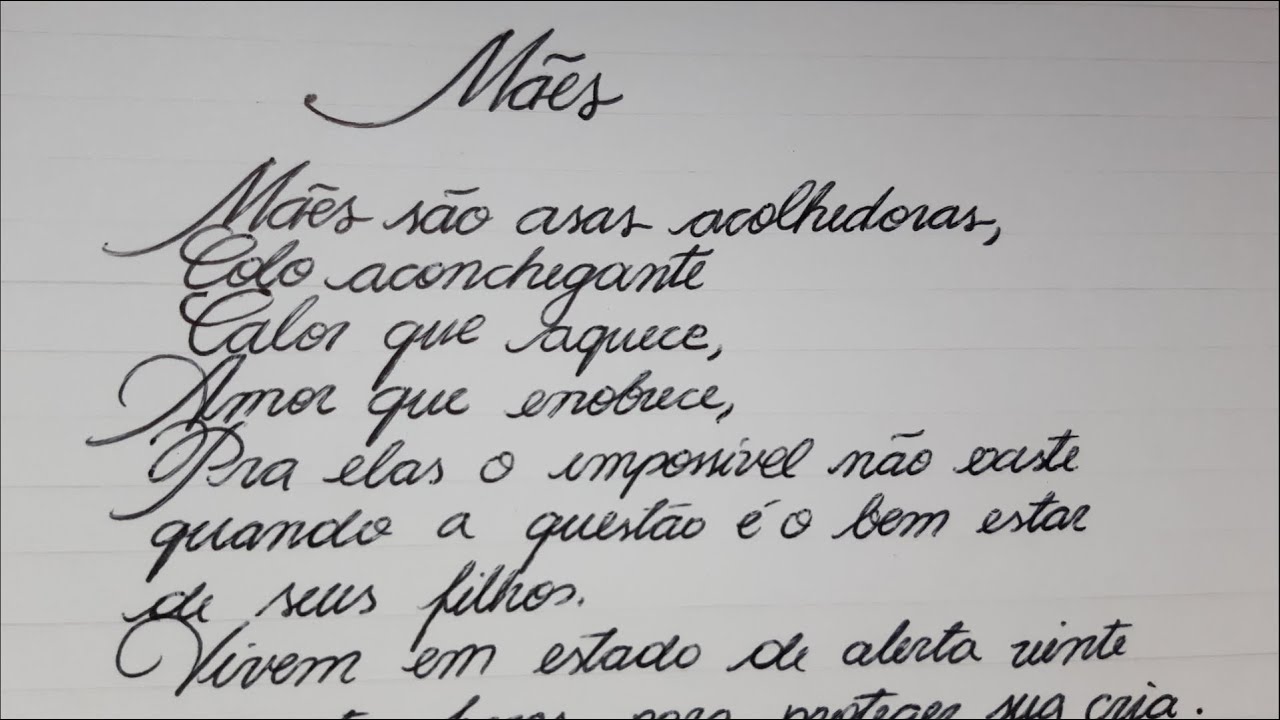 Mães
Mães são asas acolhedoras,
Colo aconchegante
Calor que aquece,
Amor que enobrece,
Pra elas o impossível não existe
quando a questão é o bem estar
de seus filhos.
Vivem em estado de alerta vinte
horas para proteger sua cria.